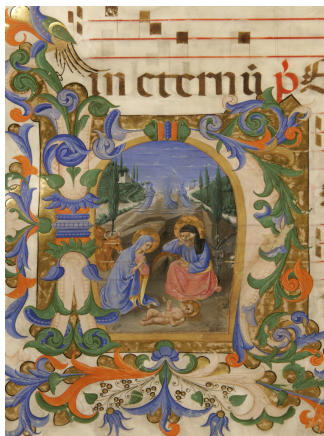 in eternū p̄